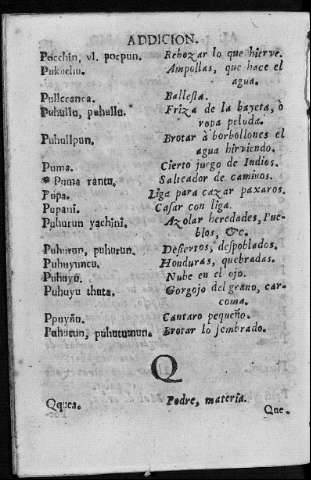 ADDICION.
Pocchin, vl. pocpun. Rebozar lo que hierve.
Pukuchu. Ampollas, que hace el
agua.
Pullccanca. Ballesta.
Puhullu, puhullu. Friza de la bayeta, ò
ropa peluda.
Puhullpun. Brotar à borbollones el
agua hirviendo.
Puma. Cierto juego de Indios.
* Puma rantu. Salteador de caminos.
Pupa. Liga para cazar paxaros.
Pupani. Casar con liga.
Puhurun yachini. Azolar heredades, Pue-
blos, &c.
Puhurun, puhurun. Desiertos, despoblados.
Puhuyuncu. Honduras, quebradas.
Puhuyu. Nube en el ojo.
Puhuyu thuta. Gorgojo del grano, car-
coma.
Ppuyñu. Cantaro pequeño.
Puhutun, puhutumun. Brotar lo sembrado.
Q
Qquea. Podre, materia.
Que-